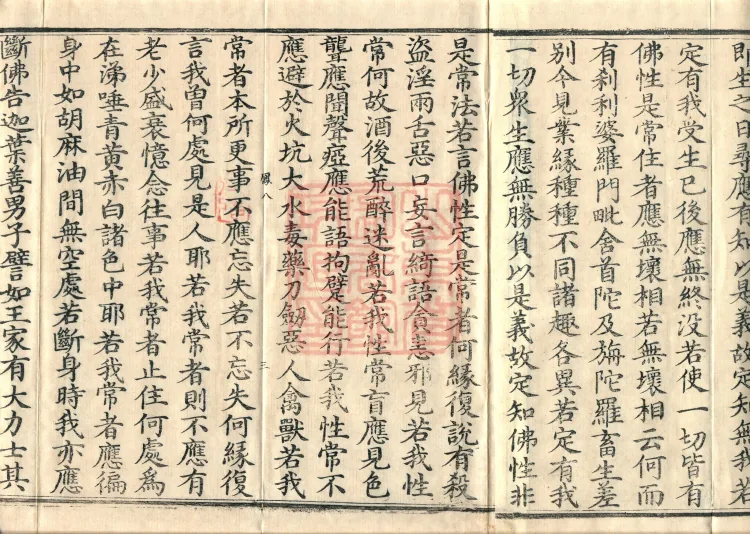 即生之日尋應有知以是義故定知無我若
定有我受生已後應無終没若使一切皆有
佛性是常住者應無壞相若無壞相云何而
有刹利婆羅門毗舍首陀及旃陀羅畜生差
別今見業緣種種不同諸趣各異若定有我
一切衆生應無勝負以是義故定知佛性非
是常法若言佛性定是常者何緣復說有殺
盜淫兩舌惡口妄言綺語貪恚邪見若我性
常何故酒後荒醉迷亂若我性常盲應見色
聾應聞聲瘂應能語拘躄能行若我性常不
應避於火坑大水毒藥刀劒惡人禽獸若我
常者本所更事不應忘失若不忘失何緣復
言我曽何處見是人耶若我常者則不應有
老少盛衰憶念往事若我常者止住何處爲
在涕唾青黃赤白諸色中耶若我常者應徧
身中如胡麻油間無空處若斷身時我亦應
斷佛告迦葉善男子譬如王家有大力士其
八
三